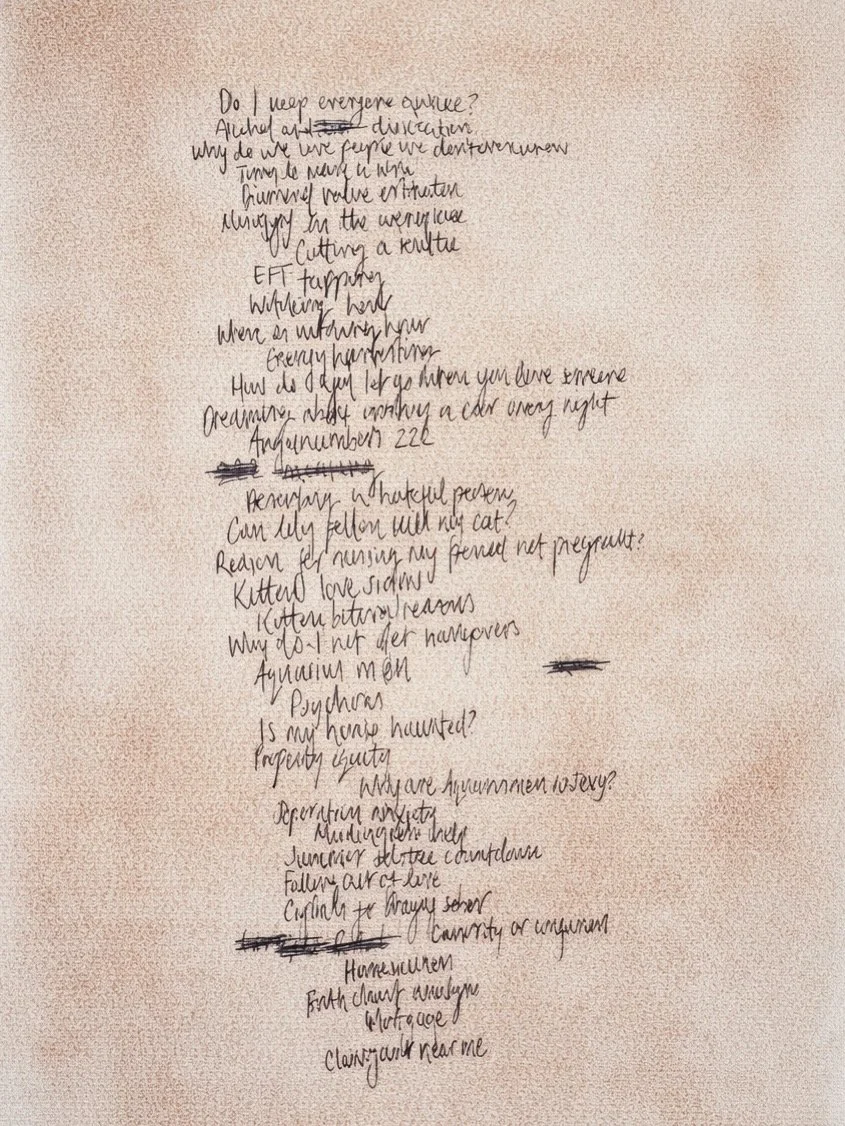 Do I keep everyone awake?
Alcohol and dissociation
Why do we love people we don't even know
Time to make a
Diamond value estimation
in the workplace
Cutting a
EFT tapping
Witching hour
When is witching hour
Energy harvesting
How do you let go when you love someone
Dreaming about crashing a car every night
Angel numbers 222
Describing a hateful person
Can lily pollen kill my cat?
Reason for missing my period not pregnant?
Kitten love signs
Kitten biting reasons
Why do I not get hangovers
Aquarius men
Psychosis
Is my house haunted?
Property equity
Why are Aquarius men so sexy?
Separation anxiety
help
Summer solstice countdown
Falling out of love
Crystals for
or
Homesickness
Birth chart analysis
Mortgage
Clairvoyant near me